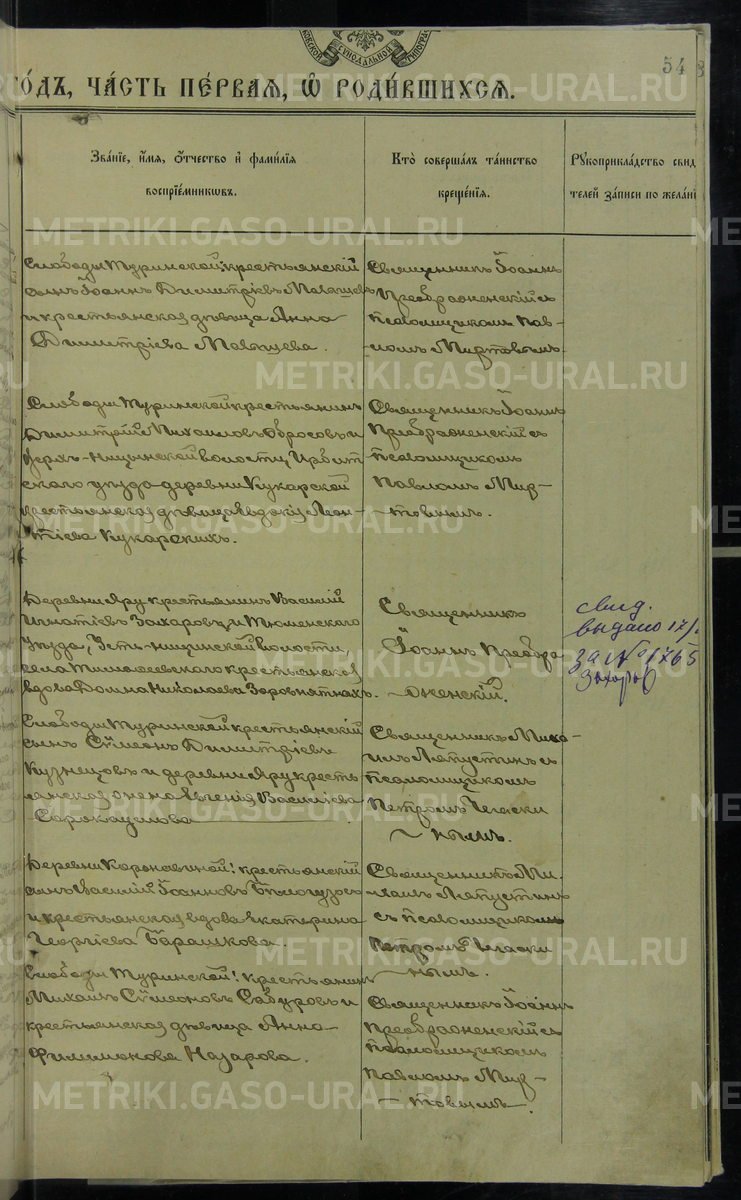 54
ГО́ДЪ, ЧА́СТЬ ПЕ́РВАѦ, Ѡ҆ РОДИ́ВШИХСѦ.
Зва́нїе, и҆́мѧ, Ѻ҆́тчество и҆ фами́лїѧ
воспрїе́мникѡвъ.
Кто̀ соверша́лъ та́инство
креще́нїѧ.
Рꙋкоприкла́дство свид
телей за́писи по жела́ні
METRIKI.GASO-URAL.RU
Слободы Туринской: крестьянскій
сынъ Іоаннъ Димитріевъ
и крестьянская дѣвица Анна
Димитріева
Священникъ Іоаннъ
Преображенскій съ
псаломщикомъ Пав-
ломъ Миртовымъ.
Слободы Туринской крестьянинъ
Димитрій Михаиловъ Обросовъ и
Верх-Ницынской волости, Ирбит
скаго уѣзда деревни Кукарской
крестьянская дѣвица Евдокія Леон-
тіева Кукарскихъ.
Священникъ Іоаннъ
Преображенскій съ
псаломщикомъ
Павломъ Мир-
товымъ.
Деревни Яру крестьянинъ Василій
Игнатіевъ Захаровъ и Тюменскаго
уѣзда, Усть-Ницинской волости,
села крестьянская
вдова Домна Николаева
Священникъ
Іоаннъ Преобра
женскій.
свид.
выдано 17/
за № 1765
Захаров
Слободы Туринской крестьянскій
сынъ Сѵмеонъ Димитріевъ
Кузнецовъ и деревни Яру кресть
янская жена Евгенія Василіева
Сорокаумова
Священникъ Миха-
илъ Лепустинъ съ
псаломщикомъ
Петромъ Челаски
нымъ.
Деревни крестьянскій
сынъ Василій Іоанновъ
и крестьянская вдова Екатерина
Георгіева Барашкова.
Священникъ Ми-
хаилъ Лепустинъ
съ псаломщикомъ
Петромъ Челаски
нымъ.
Слободы Туринской: крестьянинъ
Михаилъ Сѵмеоновъ Сабуровъ и
крестьянская дѣвица Анна
Филимонова Назарова.
Священникъ Іоаннъ
Преображенскій съ
псаломщикомъ
Павломъ Мир-
товымъ.